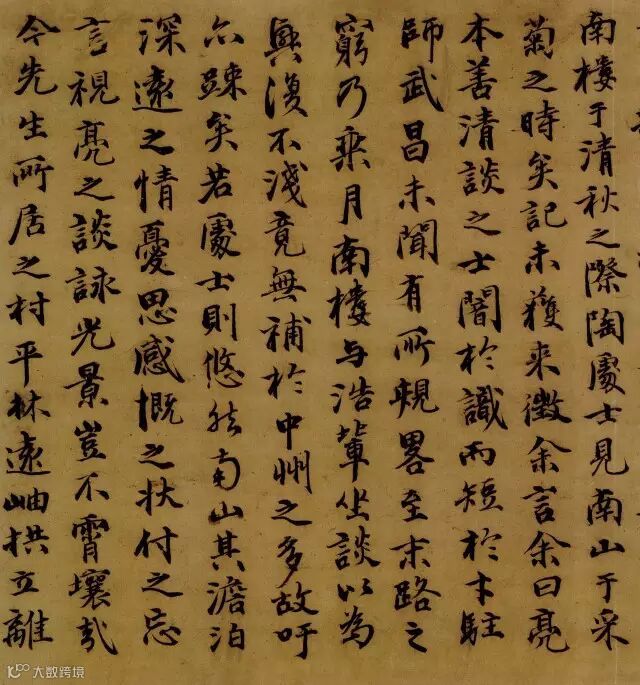 南樓于清秋之際陶處士見南山于采
菊之時矣記未獲来徵余言余曰亮
本善清談之士闇於識而短於才駐
師武昌未聞有所規畧至末路之
窮乃乘月南樓与浩輩坐談以為
興復不淺竟無補於中州之多故吁
亦踈矣若處士則悠然南山其澹泊
深遠之情憂思感慨之狀付之忘
言視亮之談詠光景豈不霄壤哉
今先生所居之村平林遠岫拱立離
大数跨境